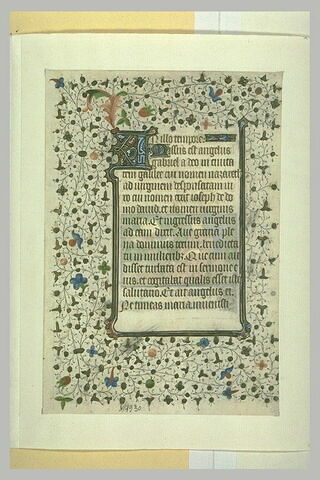 In illo tempore:
Missus est angelus
gabriel a deo in civita
tem galilee cui nomen nazareth
ad virginem desponsatam vi
ro cui nomen erat ioseph de do
mo david. et nomen virginis
maria. Et ingressus angelus
ad eam dixit. Ave gratia ple
na dominus tecum. benedicta
tu in mulieribus. Que cum au
disset turbata est in sermone e
ius. et cogitabat qualis esset ista
salutatio. Et ait angelus ei.
Ne timeas maria invenisti